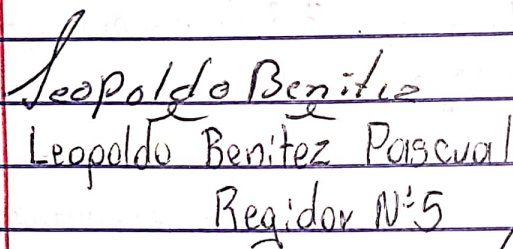 Leopoldo Benitez
Leopoldo Benitez Pascual
Regidor Nº5